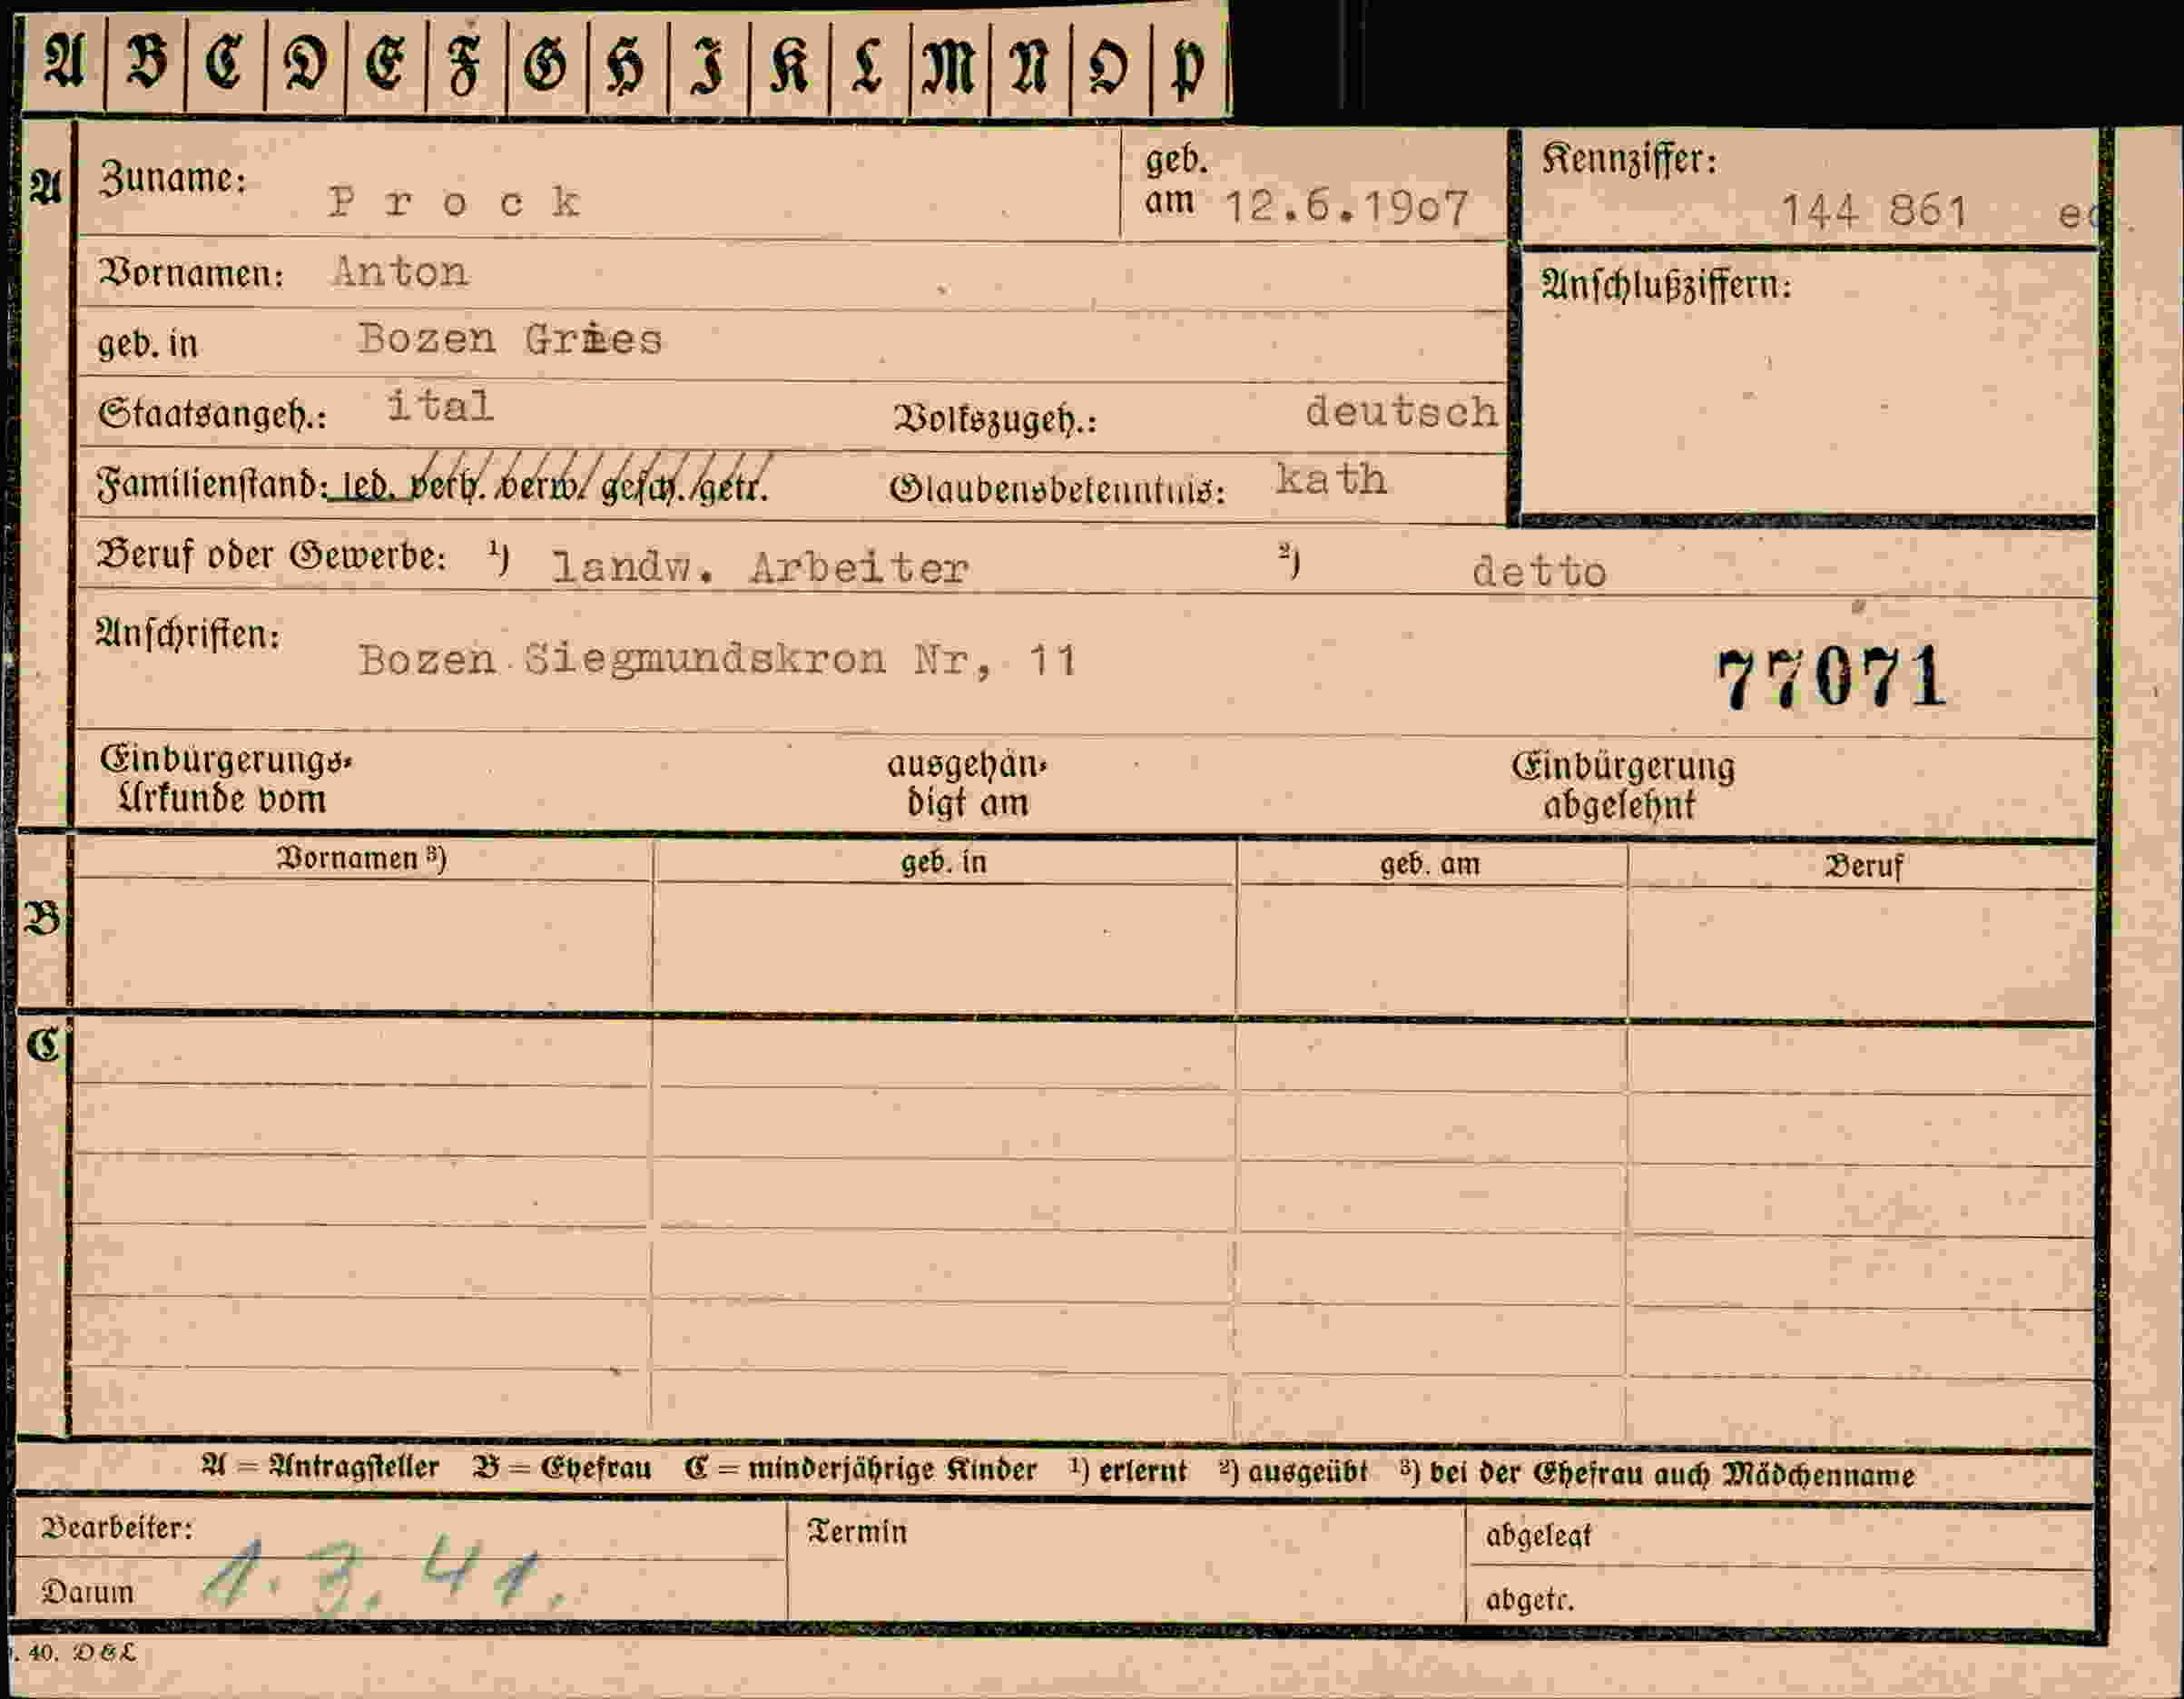 A B C D E F G H I K L M N O P
A Zuname: Prock geb. am 12.6.19o7 Kennziffer: 144 861
Vornamen: Anton Anschlußziffern:
geb. in Bozen Gries
Staatsangeh.: ital Volkszugeh.: deutsch
Familienstand: led. verh. verw. gesch. getr. Glaubensbekenntnis: kath
Beruf oder Gewerbe: ¹) landw. Arbeiter ²) detto
Anschriften: Bozen Siegmundskron Nr, 11
77071
Einbürgerungs- ausgehän- Einbürgerung
Urkunde vom digt am abgelehnt
Vornamen ³) geb. in geb. am Beruf
B
C
A = Antragsteller B = Ehefrau C = minderjährige Kinder ¹) erlernt ²) ausgeübt ³) bei der Ehefrau auch Mädchenname
Bearbeiter: Termin abgelegt
Datum 1.3.41. abgetr.
40. D&L